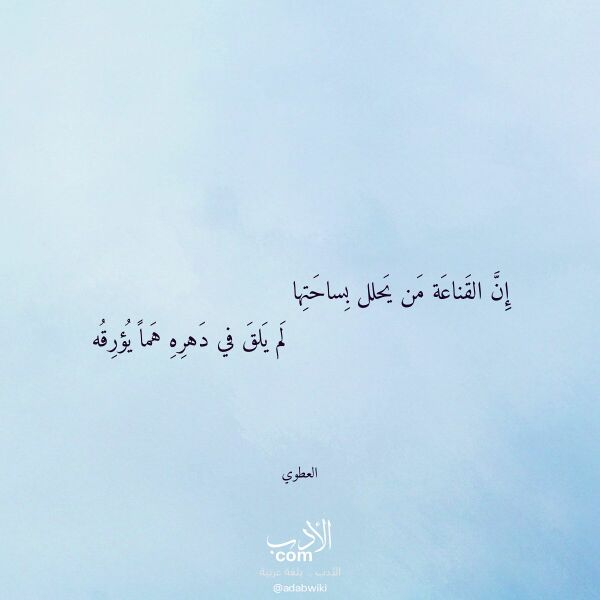 إِنَّ القَناعَة مَن يَحلل بِساحَتِها
لَم يَلقَ في دَهرِهِ هَماً يُؤرِقُه
العطوي
الأدب
com
الأدب .. بلغة عربية
@adabwiki